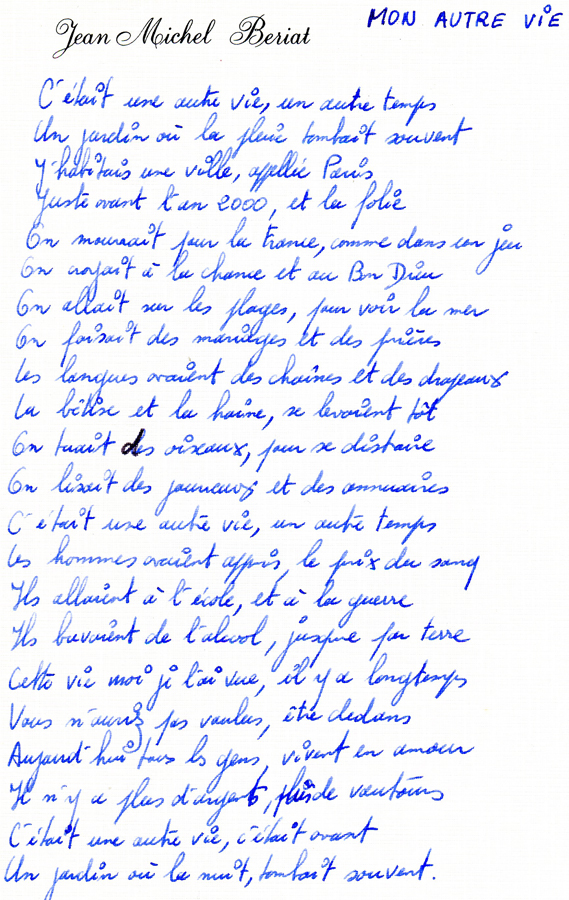 Jean Michel Beriat
MON AUTRE VIE
C'était une autre vie, un autre temps
Un jardin où la pluie tombait souvent
J'habitais une ville, appellée Paris
Juste avant l'an 2000, et la folie
On mourait pour la France, comme dans un jeu
On croyait à la chance et au Bon Dieu
On allait sur les plages, pour voir la mer
On faisait des mariages et des prières
Les langues avaient des chaînes et des drapeaux
La bêtise et la haine, se levaient tôt
On tuait des oiseaux, pour se distraire
On lisait des journaux et des annuaires
C'était une autre vie, un autre temps
Les hommes avaient appris, le prix du sang
Ils allaient à l'école, et à la guerre
Ils buvaient de l'alcool, jusque par terre
Cette vie moi je l'ai vue, il y a longtemps
Vous n'auriez pas voulus, être dedans
Aujourd'hui tous les gens, vivent en amour
Il n'y a plus d'argent, plus de vautours
C'était une autre vie, c'était avant
Un jardin où la nuit, tombait souvent.